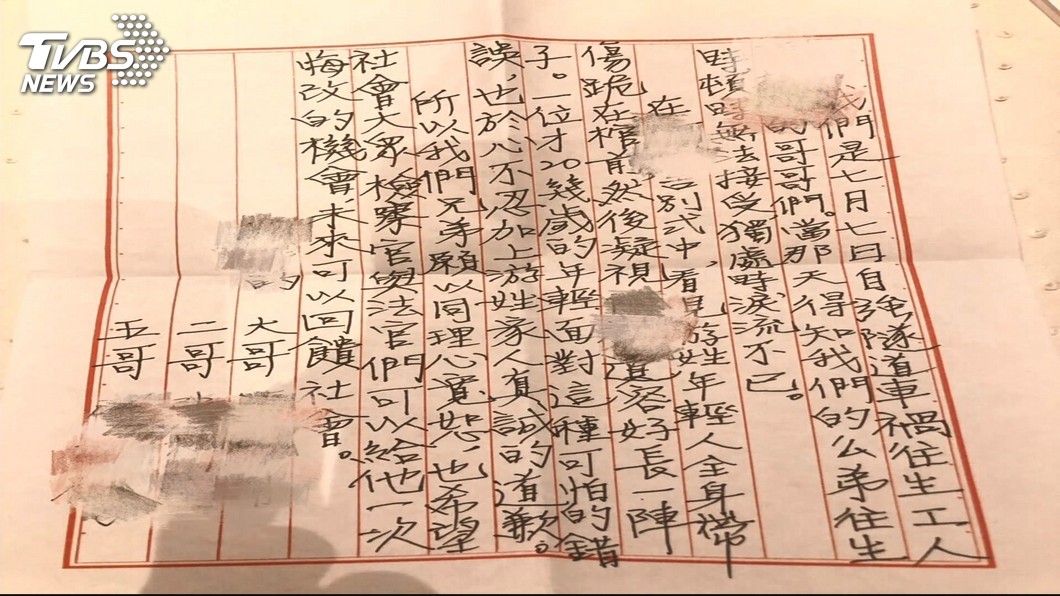 TVBS
NEWS
我們是七月七日自強隧道車禍往生工人
的哥哥們。當那天得知我們的公弟往生
時頓時無法接受獨處時淚流不已。
在 告別式中,看見游姓年輕人全身帶
傷跪在棺前然後凝視 遺容好長一陣
子。一位才20幾歲的年輕面對這種可怕的錯
誤,也於心不忍加上游姓家人真誠的道歉。
所以我們兄弟願以同理心寬恕,也希望
社會大眾檢察官與法官們可以給他一次
悔改的機會未來可以回饋社會。
的 大哥
二哥
五哥